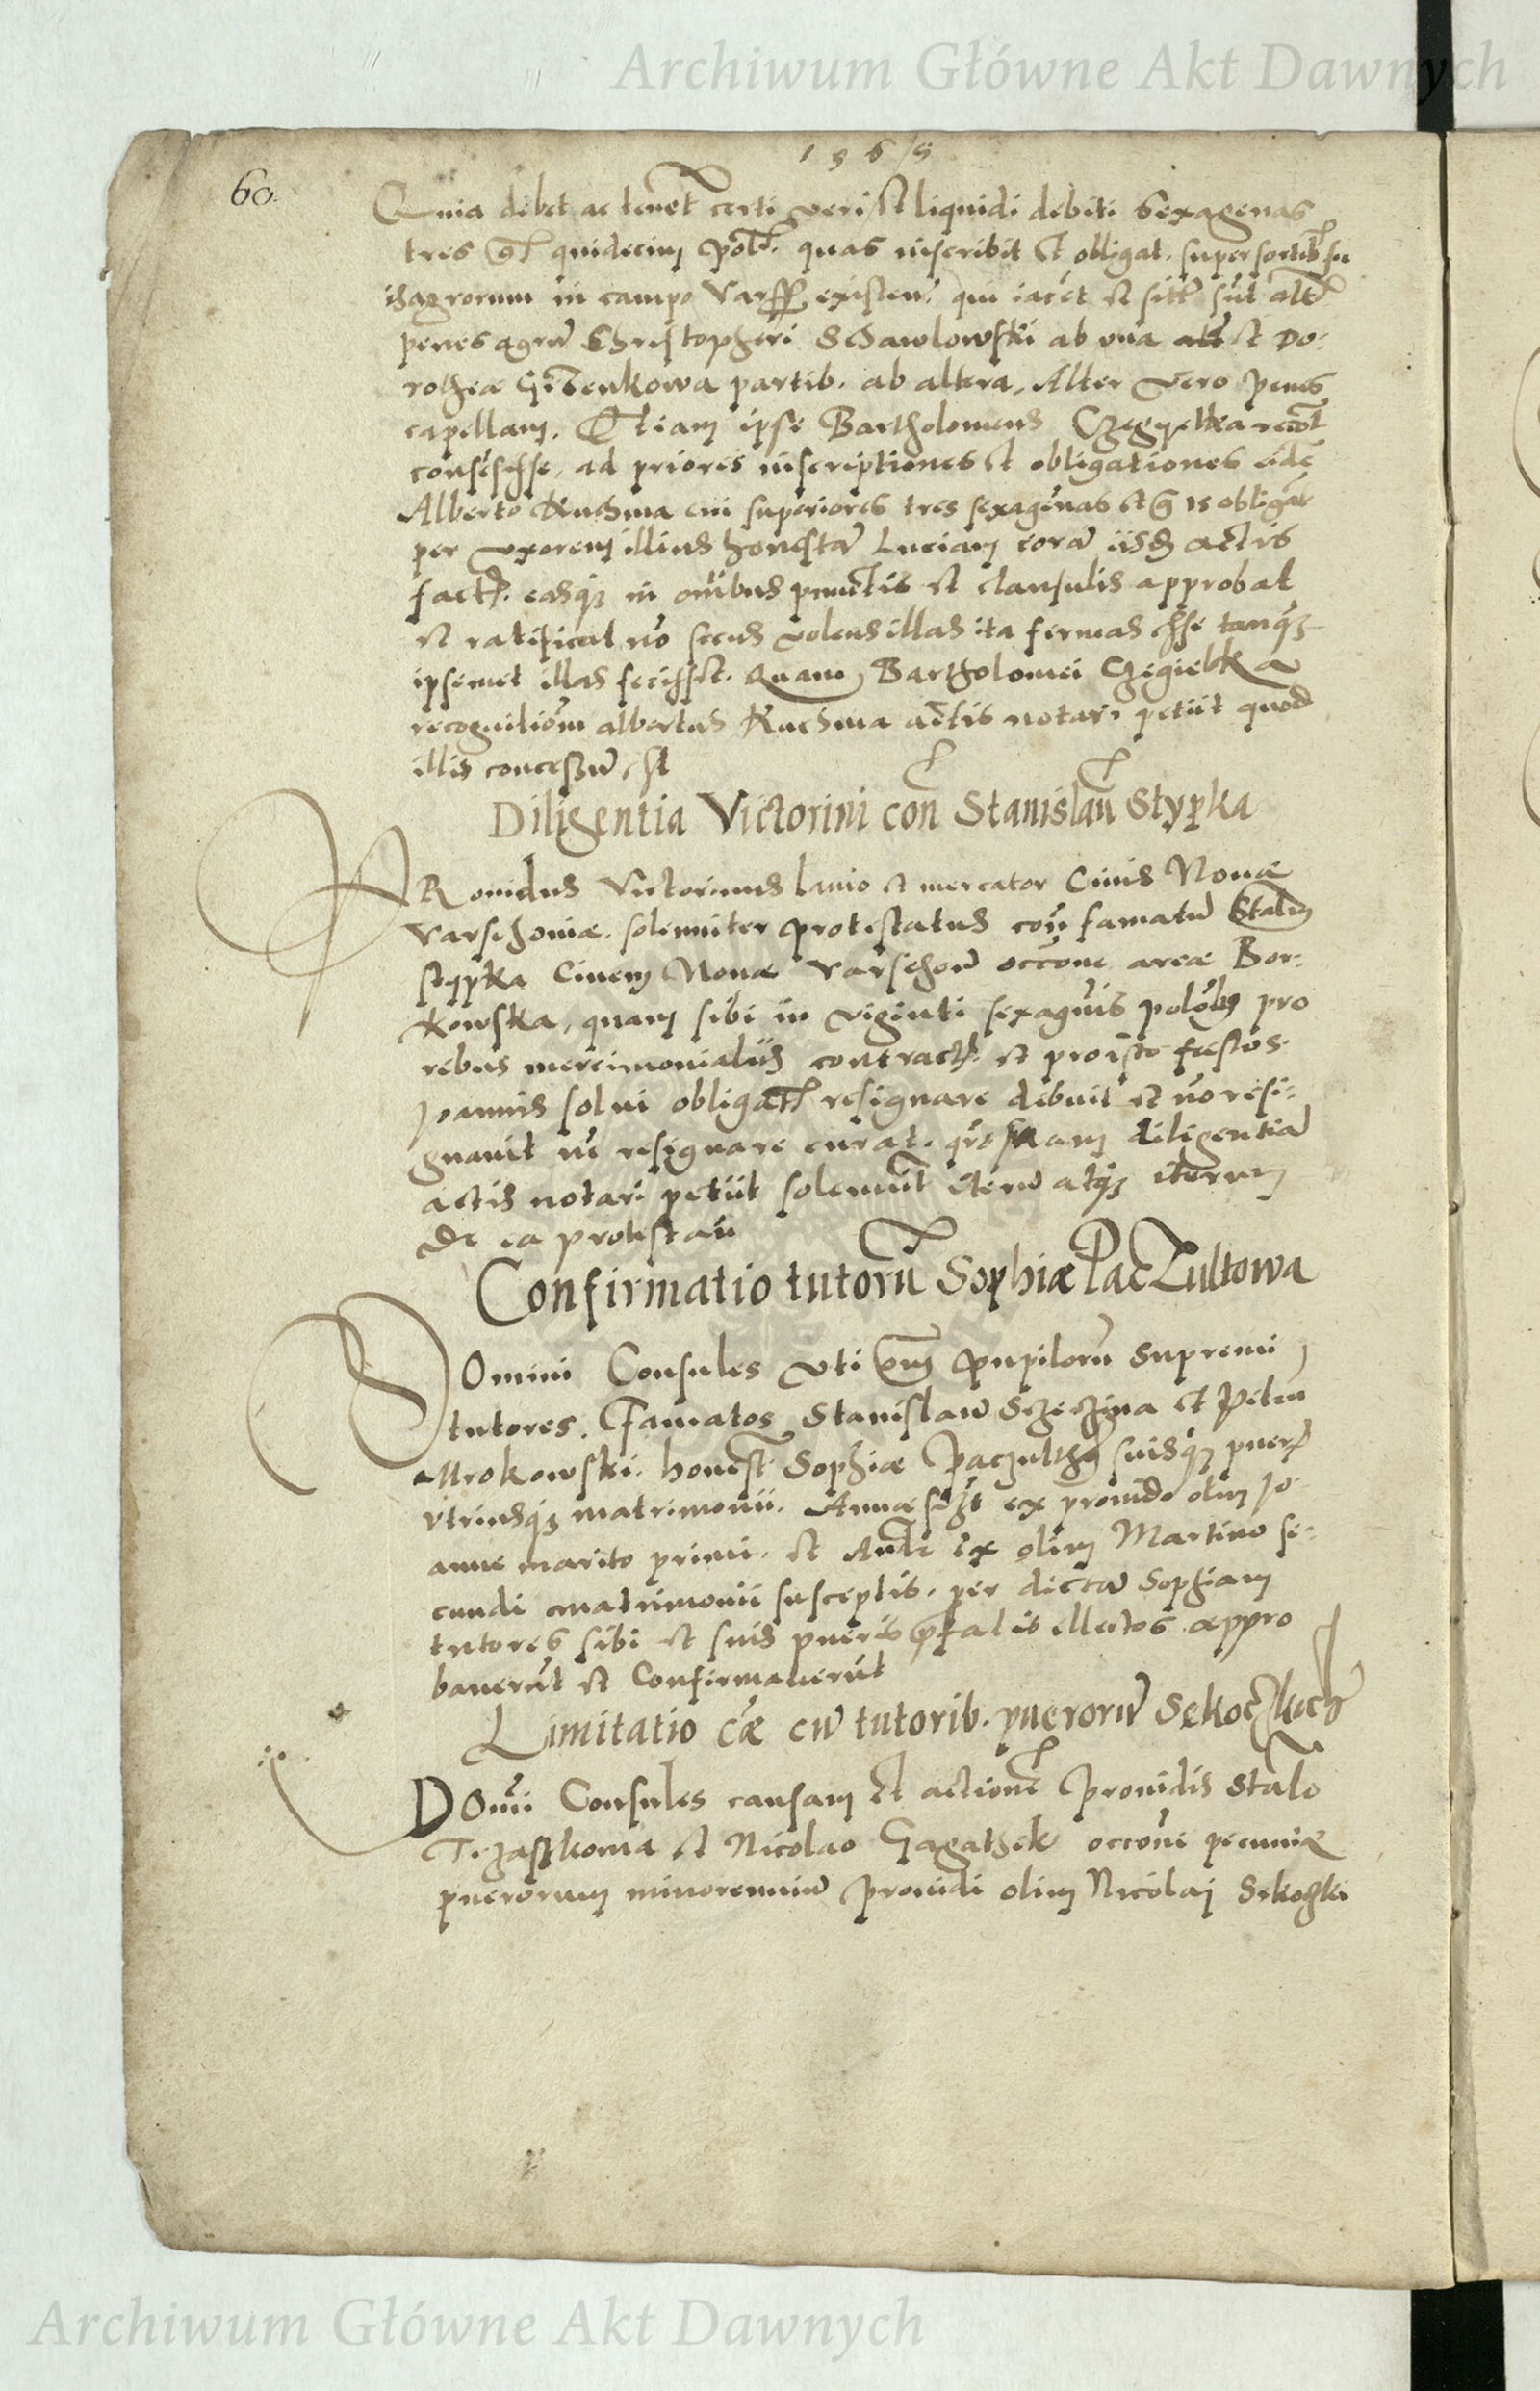 Archiwum Główne Akt Dawnych
60.
Quia debet ac tenet certi veri et liquidi debiti sexagenas
tres gr quindecim pol. quas inscribit et obligat super sortib su
is agrorum in campo Vars existen. qui iacēt et siti sūt alt
penes agrū Christopheri Schawlowski ab una et Do-
rotheae partib. ab altera, Alter vero penes
capellam. Etiam ipse Bartholomeus Czegyelka
consēsisse, ad priores inscriptiones et obligationes eidē
Alberto Kuchma cui superiores tres sexagēnas et g 15 obligāt
per uxorem illius honestā Luciam corā iisdē actis
fact. easq3 in omībus punctis et clausulis approbat
et ratificat nō secus volens illas ita firmas esse tanq3
ipsemet illas fecisset. Quam Bartholomei Czegielka
recognitiōem albertus Kuchma actis notari petiit quod
illis concessū est
Diligentia Victorini con Stanislaū Stypka
PRouidus Victorinus lanio et mercator Ciuis Nouae
Varschouiae. solenniter protestatus con famatū Stalm
stypka Ciuem Nouae Varschou occone areae Bor-
kowska, quam sibi in viginti sexagenis pro
rebus mercimonialib contract. et pro festo s.
Joannis solui obligat resignare debuit et nō resi-
gnauit nē resignare curat. suam diligentiā
actis notari petiit solennit iterū atq3 iterum
De ea protestaū
Confirmatio tutorū Sophiae Paczultowa
DOmini Consules uti oīm pupilorū supremi
tutores. Famatos Stanislaū et Petrū
Mrokowski. honest Sophiae suisq3 puer
utriusq3 matrimonii. Annae ex prouido olim Jo-
anne marito primi. et ex olim Martino se-
cundi matrimonii susceptis. per dictā Sophiam
tutores sibi et suis pueris ellectos appro
bauerūt et Confirmauerūt
Limitatio cāe cū tutorib. puerorū Sękoczkich
DOmi Consules causam et actionē Prouidis Stalo
et Nicolao Gagathek occone pecuniae
puerorum minorenniū prouidi olim Nicolai Sekoczki
Archiwum Główne Akt Dawnych